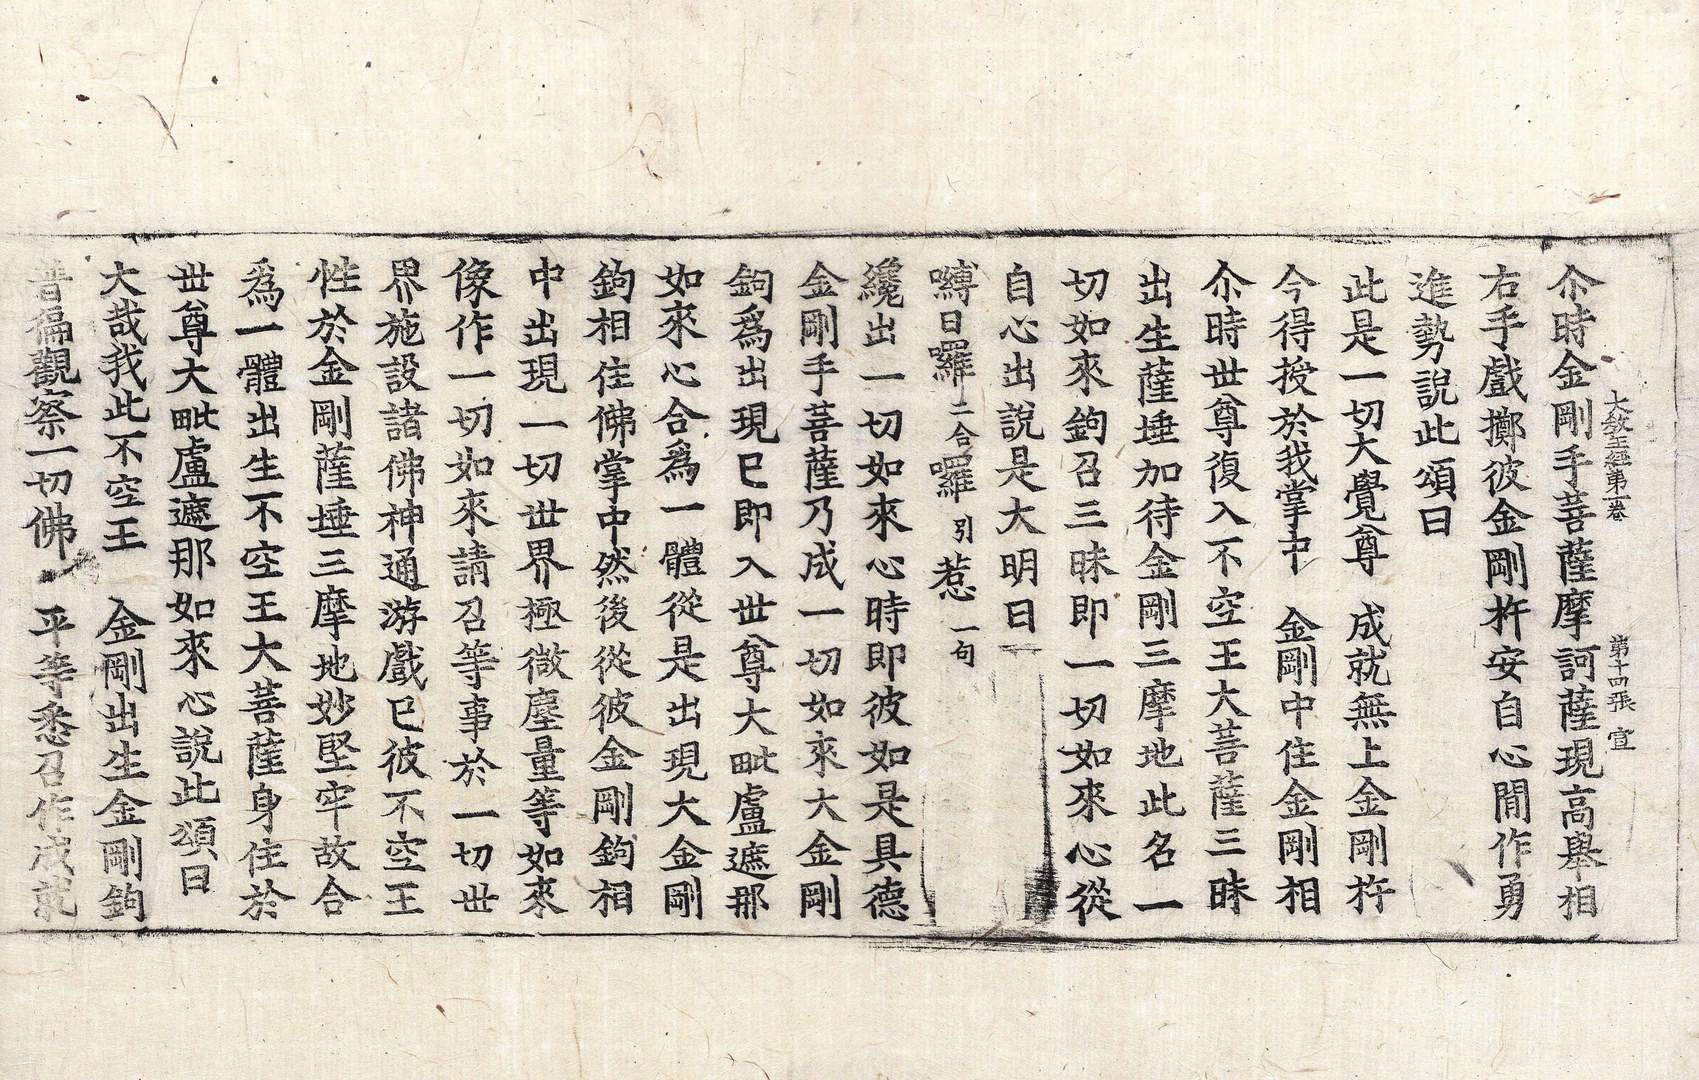 大教王經第一卷　第十四張　宣
尒時金剛手菩薩摩訶薩現高舉相
右手戲擲彼金剛杵安自心間作勇
進勢說此頌曰
此是一切大覺尊　成就無上金剛杵
今得授於我掌中　金剛中住金剛相
尒時世尊復入不空王大菩薩三昧
出生薩埵加持金剛三摩地此名一
切如來鉤召三昧即一切如來心從
自心出說是大明曰
嚩日囉二合囉引惹一句
纔出一切如來心時即彼如是具德
金剛手菩薩乃成一切如來大金剛
鉤爲出現已即入世尊大毗盧遮那
如來心合爲一體從是出現大金剛
鉤相住佛掌中然後從彼金剛鉤相
中出現一切世界極微塵量等如來
像作一切如來請召等事於一切世
界施設諸佛神通游戲已彼不空王
性於金剛薩埵三摩地妙堅牢故合
爲一體出生不空王大菩薩身住於
世尊大毗盧遮那如來心說此頌曰
大哉我此不空王　金剛出生金剛鉤
普徧觀察一切佛　平等悉召作成就